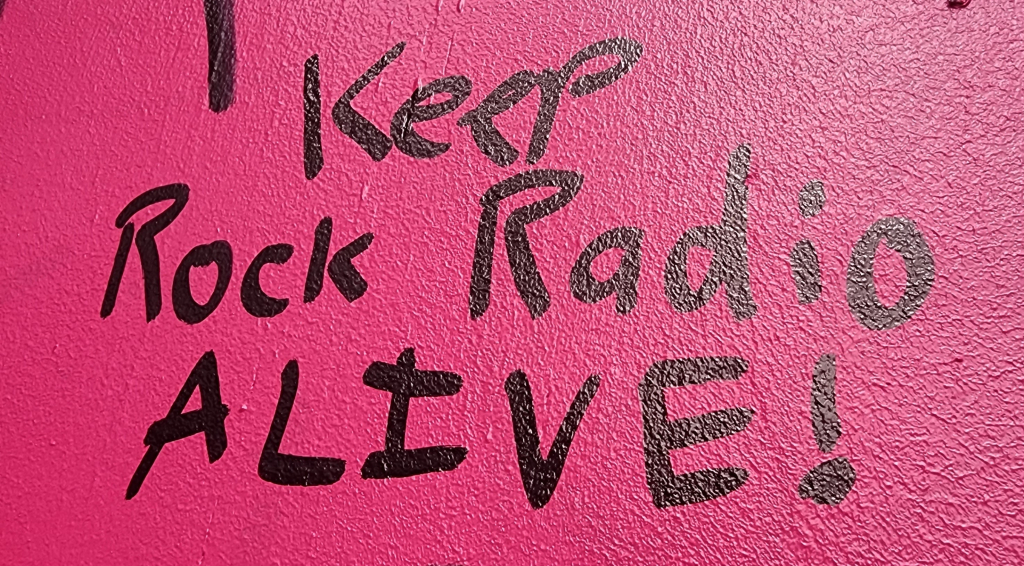 Keep
Rock Radio
ALIVE!